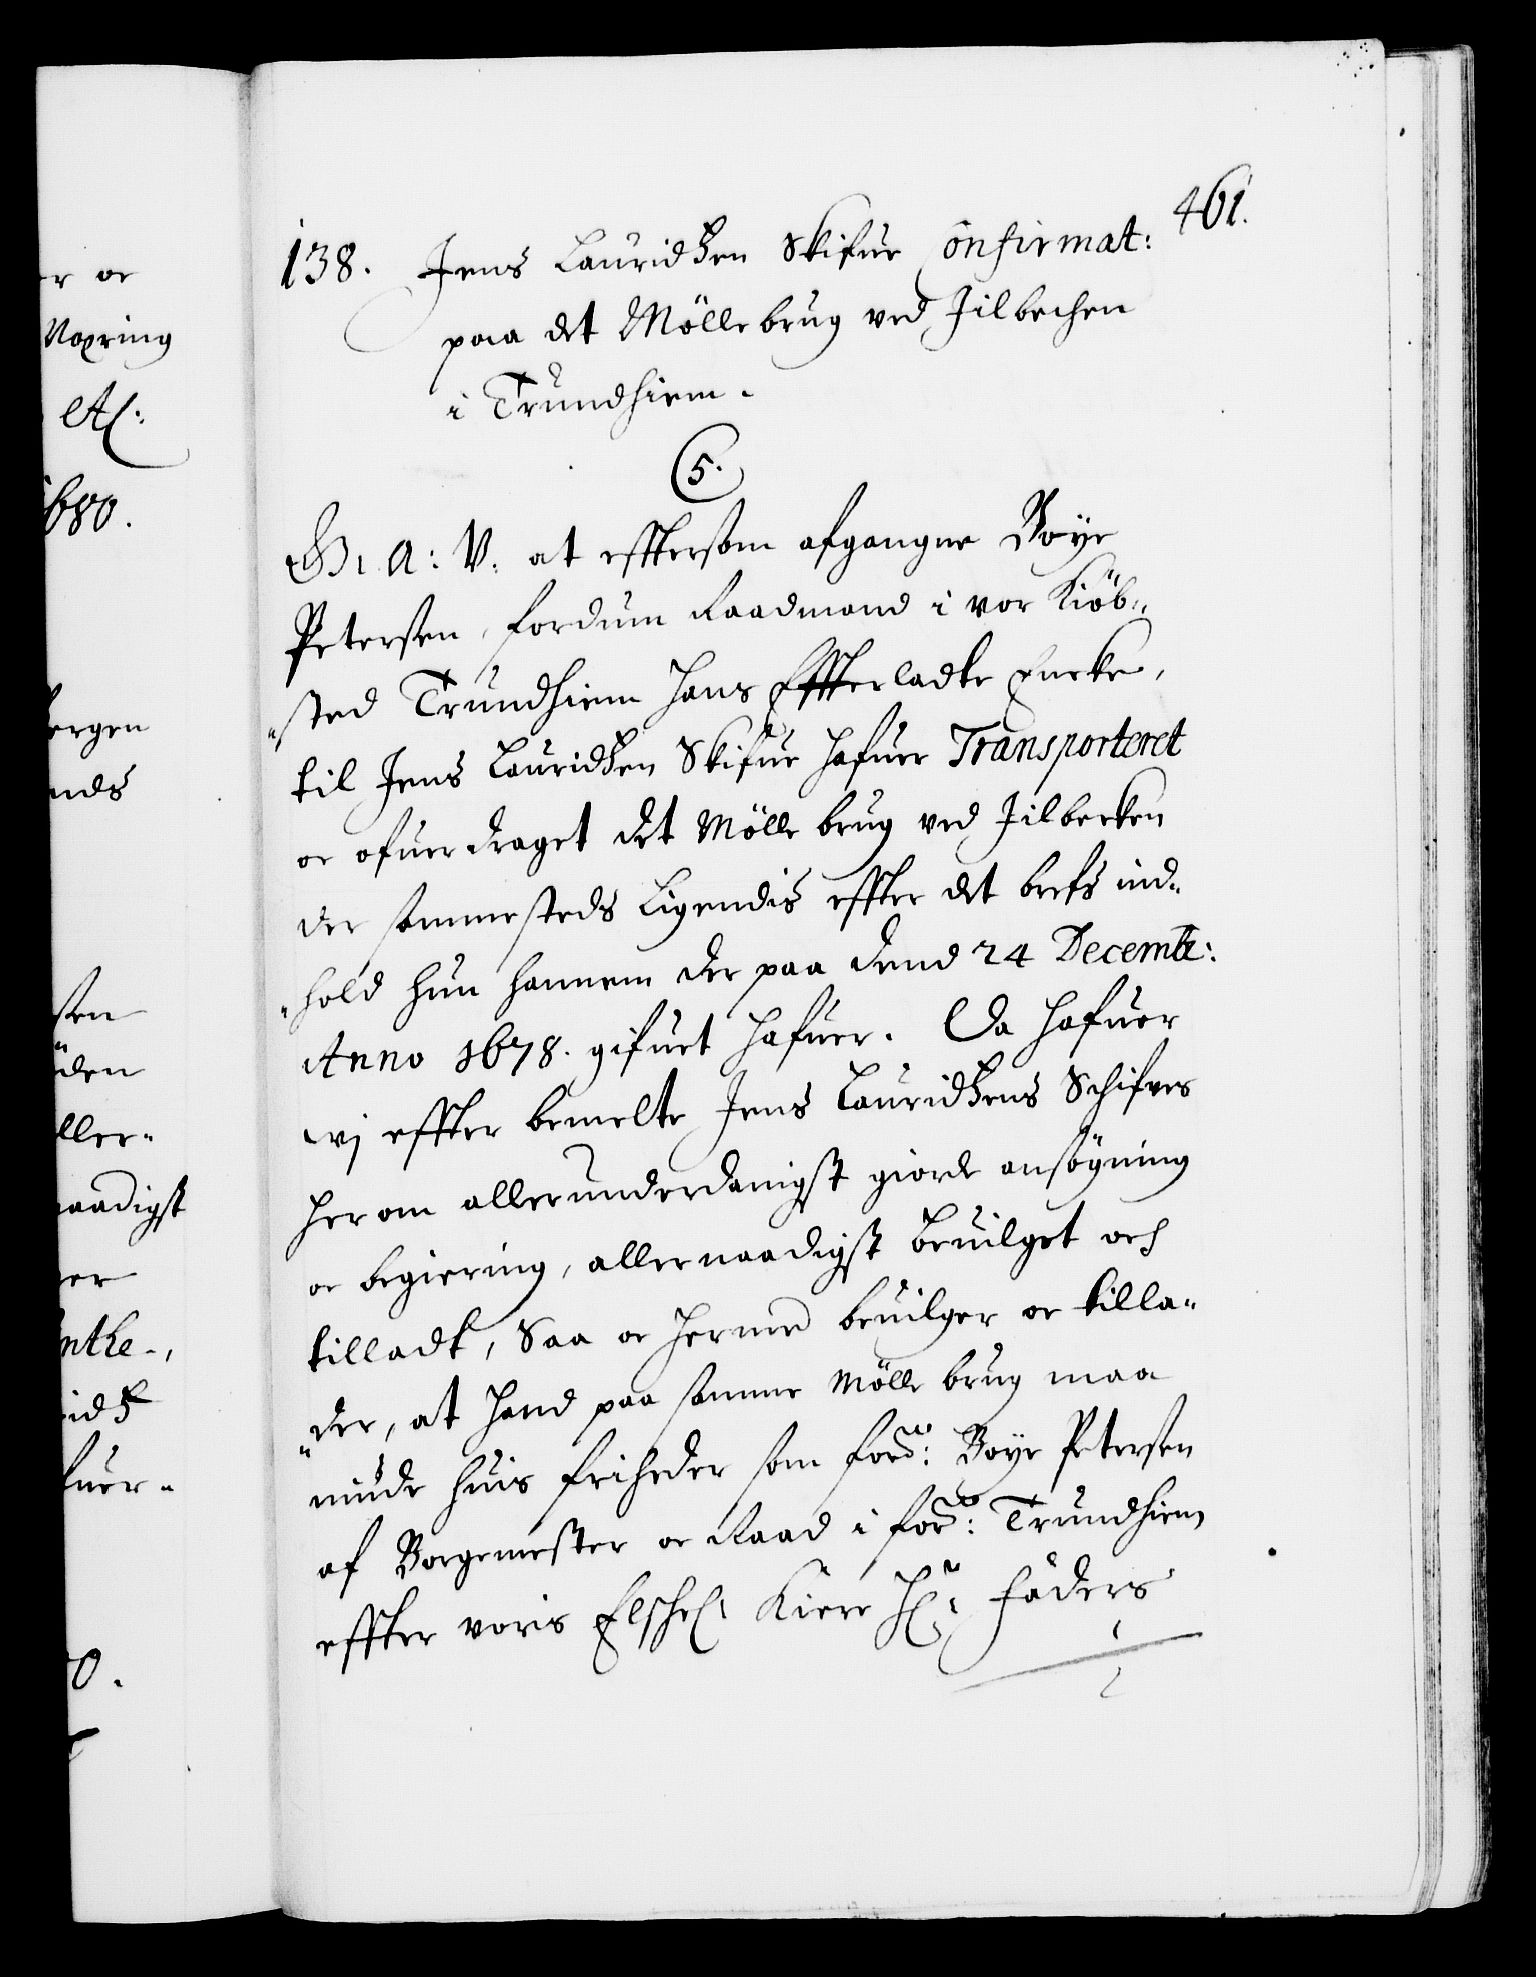 461.
138. Jens Lauridsen Skifue Confirmat:
paa det Möllebrug ved Jilbechen
i Trundhiem.
C5.
G. A: V. at effterson afgangne Boÿe
Petersen, fordum Raadmand i vor Kiöb„
„sted Trundhiem hans Effterladte Encke,
til Jens Lauridsen Skifue hafuer Transporteret
oc ofuerdraget det Mölle brug ved Jilbecken
der sammesteds Ligendis effter det brefs ind„
„hold hun hannem der paa dend 24 Decemb:
Anno 1678. gifuet hafuer. Da hafuer
wj effter bemelte Jens Lauridsens Schifves
her om allerunderdanigst giorde ansögning
oc begiering, allernaadigst beuilget och
tilladt, Saa oc hermed beuilger oc tilla„
„der, at hand paa samme Mölle brug maa
niude huis friheder som ford: Boÿe Petersen
af Borgemester oc Raad i ford: Trundhiem
effter voris Elschel: Kiere Hr: Faders
r oc
Noxring
etc:
1680.
ergen
nds
sen
öden
ller„
naadigst
er
fuer„
0.